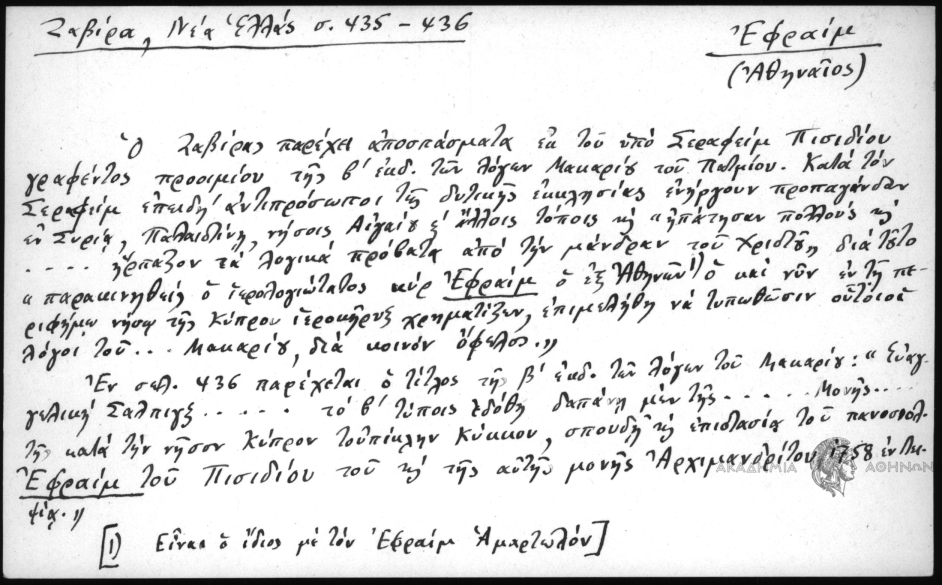 Ζαβίρα, Νέα Ἑλλάς σ. 435 – 436
Ἐφραίμ
(Ἀθηναῖος)
Ὁ Ζαβίρας παρέχει ἀποσπάσματα ἐκ τοῦ ὑπό Σεραφείμ Πισιδίου
γραφέντος προοιμίου τῆς β' ἐκδ. τῶν λόγων Μακαρίου τοῦ Πατμίου. Κατά τόν
Σεραφείμ ἐπειδή ἀντιπρόσωποι τῆς δυτικῆς ἐκκλησίας ἐνήργουν προπαγάνδαν
ἐν Συρίᾳ, Παλαιστίνῃ, νήσοις Αἰγαίου ἐν ἄλλοις τόποις κ̓ "ἠπάτησαν πολλούς κ̓
. . . . ἥρπαζον τά λογικά πρόβατα ἀπό τήν μάνδραν τοῦ Χριστοῦ, διά τοῦτο
"παρακινηθείς ὁ ἱερολογιώτατος κύρ Ἐφραίμ ὁ ἐξ Ἀθηνῶν¹⁾ ὁ καί νῦν ἐν τῇ πε-
ριφήμῳ νήσῳ τῆς Κύπρου ἱεροκήρυξ χρηματίζων, ἐπιμελήθη νά τυπωθῶσιν οὗτοι οἱ
λόγοι τοῦ ... Μακαρίου, διά κοινόν ὄφελος."
Ἐν σελ. 436 παρέχεται ὁ τίτλος τῆς β' ἐκδ. τῶν λόγων τοῦ Μακαρίου: "Εὐαγ-
γελική Σάλπιγξ . . . . . τό β' τύποις ἐδόθη δαπάνῃ μέν τῆς . . . . . Μονῆς....
τῆς κατά τήν νῆσον Κύπρον τοὐπίκλην Κύκκου, σπουδῇ κ̓ ἐπιστασίᾳ τοῦ πανοσιολ-
Ἐφραίμ τοῦ Πισιδίου τοῦ κ̓ τῆς αὐτῆς μονῆς Ἀρχιμανδρίτου 1758 ἐν Λει-
ψίᾳ."
[1) Εἶναι ὁ ἴδιος μέ τόν Ἐφραίμ Ἁμαρτωλόν]
ΑΚΑΔΗΜΙΑ ΑΘΗΝΩΝ